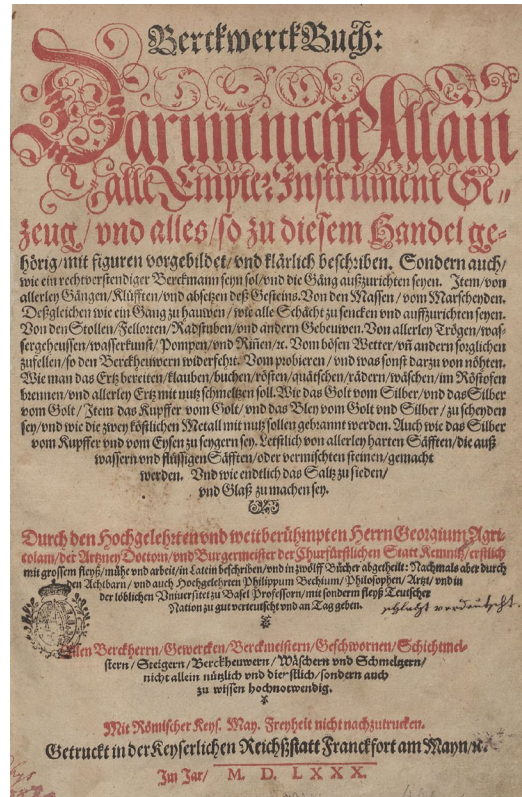 BerckwerckBuch:
Darinn nicht Allain
alle Empter Instrument Ge-
zeug / vnd alles / so zu diesem Handel ge-
hörig / mit figuren vorgebildet / vnd klärlich beschriben. Sondern auch /
wie ein rechtverstendiger Berckmann seyn sol / vnd die Gäng außzurichten seyen. Item / von
allerley Gängen / Klüfften / vnd absetzen deß Gesteins. Von den Massen / vom Marscheyden.
Deßgleichen wie ein Gang zu hauwen / wie alle Schächt zu sencken vnd auffzurichten seyen.
Von den Stollen / Fellorten / Radstuben / vnd andern Gebeuwen. Von allerley Trögen / was-
sergeheussen / wasserkunst / Pompen / vnd Riñen / ꝛc. Vom bösen Wetter / vñ andern sorglichen
zufellen / so den Berckheuwern widerfehrt. Vom probieren / vnd was sonst darzu von nöhten.
Wie man das Ertz bereiten / klauben / buchen / rösten / quätschen / rädern / wäschen / im Röstofen
brennen / vnd allerley Ertz mit nutz schmeltzen soll. Wie das Golt vom Silber / vnd das Silber
vom Golt / Item das Kupffer vom Golt / vnd das Bley vom Golt vnd Silber / zu scheyden
sey / vnd wie die zwey köstlichen Metall mit nutz sollen gebrannt werden. Auch wie das Silber
vom Kupffer vnd vom Eysen zu seygern sey. Letstlich von allerley harten Säfften / die auß
wassern vnd flüssigen Säfften / oder vermischten steinen / gemacht
werden. Vnd wie endtlich das Saltz zu sieden /
vnd Glaß zu machen sey.
Durch den Hochgelehrten vnd weitberühmpten Herrn Georgium Agri-
colam / der Artzney Doctorn / vnd Burgermeister der Churfürstlichen Statt Kemnitz / erstlich
mit grossem fleyß / mühe vnd arbeit / in Latein beschriben / vnd in zwölff Bücher abgetheilt: Nachmals aber durch
den Achtbarn / vnd auch Hochgelehrten Philippum Bechium / Philosophen / Artzt / vnd in
der löblichen Vniuersitet zu Basel Professorn / mit sonderm fleyß Teutscher
Nation zu gut verteutscht vnd an Tag geben. schlecht verdeutscht.
Allen Berckherrn / Gewercken / Berckmeistern / Geschwornen / Schichtmei-
stern / Steigern / Berckheuwern / Wäschern vnd Schmeltzern /
nicht allein nützlich vnd dienstlich / sondern auch
zu wissen hochnotwendig.
Mit Römischer Keys. May. Freyheit nicht nachzutrucken.
Getruckt in der Keyserlichen Reichßstatt Franckfort am Mayn / ꝛc.
Im Jar / M. D. LXXX.